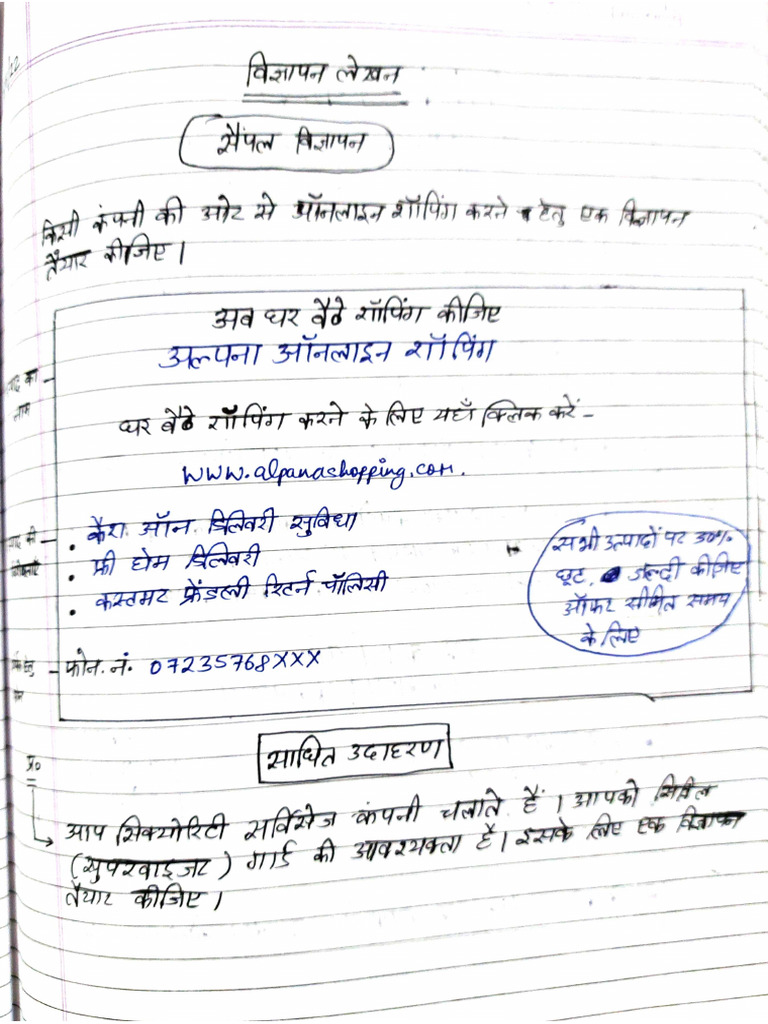 विज्ञापन लेखन
सैंपल विज्ञापन
किसी कंपनी की ओर से ऑनलाइन शॉपिंग करने हेतु एक विज्ञापन
तैयार कीजिए।
अब घर बैठे शॉपिंग कीजिए
अल्पना ऑनलाइन शॉपिंग
का
नाम
घर बैठे शॉपिंग करने के लिए यहाँ क्लिक करें -
www.alpanashopping.com.
• कैश ऑन डिलिवरी सुविधा
• फ्री होम डिलिवरी
• कस्टमर फ्रेंडली रिटर्न पॉलिसी
सभी उत्पादों पर 30%
छूट, जल्दी कीजिए
ऑफर सीमित समय
के लिए
फोन. नं. 07235768XXX
साधित उदाहरण
प्र०
आप सिक्योरिटी सर्विसेज कंपनी चलाते हैं। आपको सिविल
(सुपरवाइजर) गार्ड की आवश्यकता है। इसके लिए एक विज्ञापन
तैयार कीजिए।